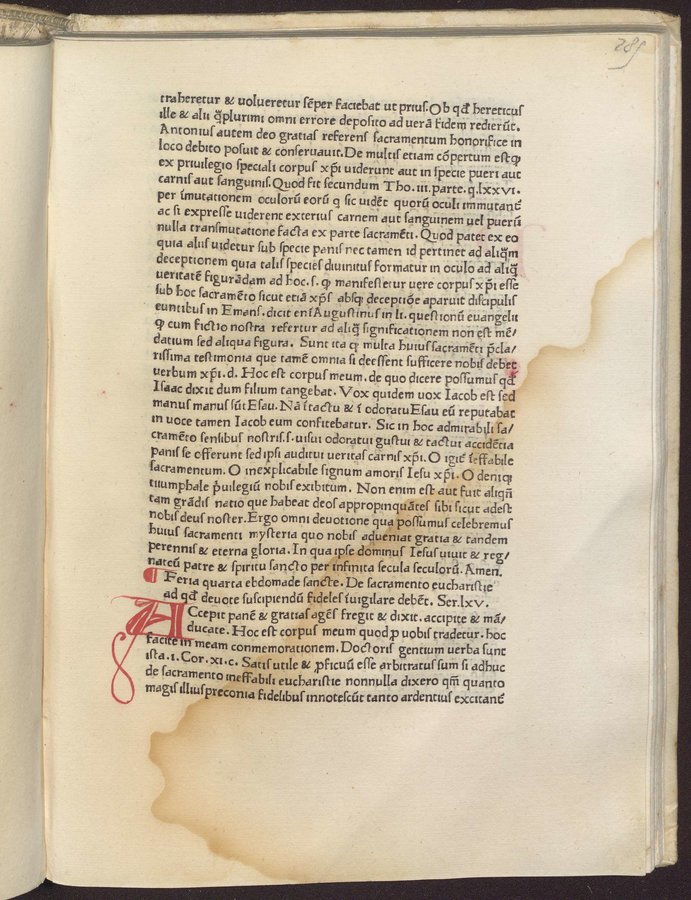 289
traheretur & uolueretur sēper faciebat ut prius. Ob qđ hereticus
ille & alii q̄plurimi omni errore deposito ad uerā fidem redierūt.
Antonius autem deo gratias referens sacramentum honorifice in
loco debito posuit & conseruauit. De multis etiam cōpertum est ꝙ
ex priuilegio speciali corpus xp̄i uiderunt aut in specie pueri aut
carnis aut sanguinis. Quod fit secundum Tho. iii. parte. q. lxxvi.
per īmutationem oculorū eorū q̄ sic uidēt quorū oculi immutant̄
ac si expresse uiderent exterius carnem aut sanguinem uel puerū
nulla transmutatione facta ex parte sacramēti. Quod patet ex eo
quia aliis uidetur sub specie panis nec tamen id pertinet ad aliq̄m
deceptionem quia talis species diuinitus formatur in oculo ad aliq̄
ueritatē figurādam ad hoc. s. ꝙ manifestetur uere corpus xp̄i esse
sub hoc sacramēto sicut etiā xp̄s absqꝫ deceptiōe aparuit discipulis
euntibus in Emaus. dicit enī Augustinus in li. questionū euangelii
ꝙ cum fictio nostra refertur ad aliq̄ significationem non est mē/
datium sed aliqua figura. Sunt ita ꝙ multa huius sacramēti p̄cla/
rissima testimonia que tamē omnia si deessent sufficere nobis debet
uerbum xp̄i. d. Hoc est corpus meum. de quo dicere possumus qđ
Isaac dixit dum filium tangebat. Vox quidem uox Iacob est sed
manus manus sūt Esau. Nā ī tactu & ī odoratu Esau eū reputabat
in uoce tamen Iacob eum confitebatur. Sic in hoc admirabili sa/
cramēto sensibus nostris. s. uisui odoratui gustui & tactui accidētia
panis se offerunt sed ipsi auditui ueritas carnis xp̄i. O igit̄ īeffabile
sacramentum. O inexplicabile signum amoris Iesu xp̄i. O deniqꝫ
triumphale p̄uilegiū nobis exibitum. Non enim est aut fuit aliqñ
tam grādis natio que habeat deos appropinquātes sibi sicut adest
nobis deus noster. Ergo omni deuotione qua possumus celebremus
huius sacramenti mysteria quo nobis adueniat gratia & tandem
perennis & eterna gloria. In qua ipse dominus Iesus uiuit & reg/
nat cū patre & spiritu sancto per infinita secula seculorū. Amen.
¶ Feria quarta ebdomade sancte. De sacramento eucharistie
ad qđ deuote suscipiendū fideles īuigilare debēt. Ser. lxv.
ACcepit panē & gratias agēs fregit & dixit. accipite & mā/
ducate. Hoc est corpus meum quod ꝓ uobis tradetur. hoc
facite in meam conmemorationem. Doctoris gentium uerba sunt
ista. i. Cor. xi. c. Satis utile & ꝓficuū esse arbitratus sum si adhuc
de sacramento ineffabili eucharistie nonnulla dixero qm̄ quanto
magis illius preconia fidelibus innotescūt tanto ardentius excitant̄